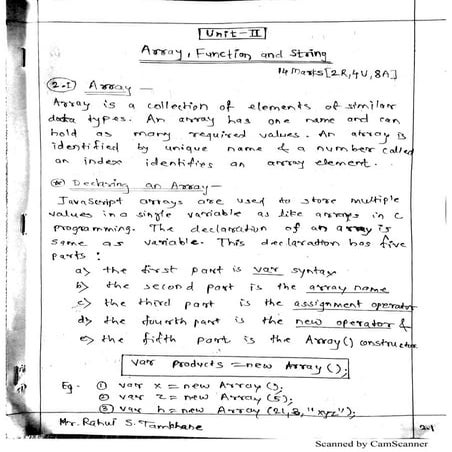 Unit-II
Array, Function and String
14 Marks [2R, 4U, 8A]
2.1 Array —
Array is a collection of elements of similar
data types. An array has one name and can
hold as many required values. An array is
identified by unique name & a number called
an index identifies an array element.
* Declaring an Array —
JavaScript arrays are used to store multiple
values in a single variable as like arrays in C
programming. The declaration of an array is
same as variable. This declaration has five
parts :
a) the first part is var syntax
b) the second part is the array name
c) the third part is the assignment operator
d) the fourth part is the new operator &
e) the fifth part is the Array() constructor
var products = new Array();
Eg. - ① var x = new Array();
② var z = new Array(5);
③ var h = new Array(21, 3, "xyz");
Mr. Rahul S. Tamkhane
2.1
Scanned by CamScanner